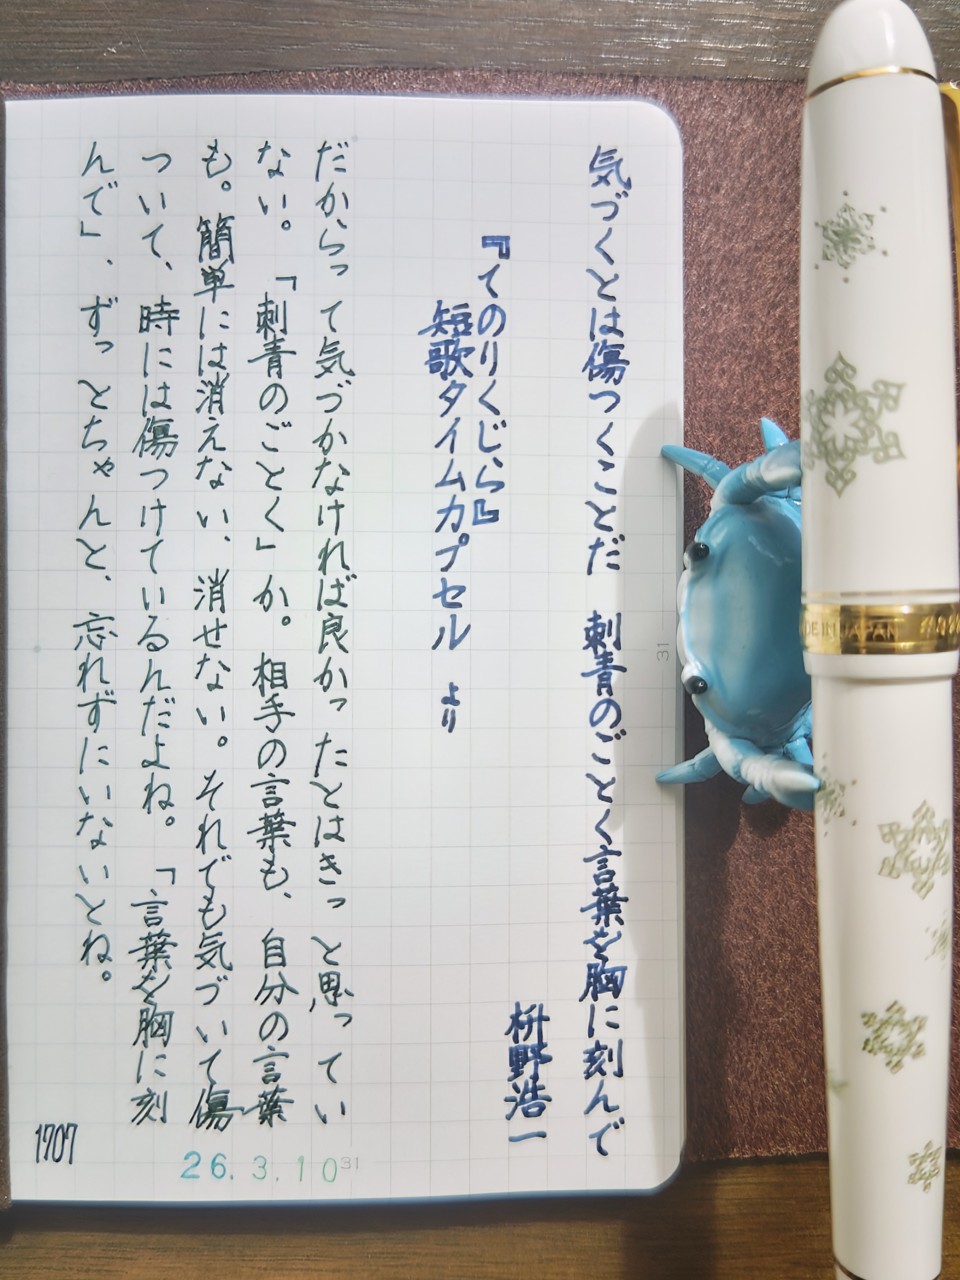 気づくとは傷つくことだ　刺青のごとく言葉を胸に刻んで
枡野浩一
『てのりくじら』
短歌タイムカプセル　より
だからって気づかなければ良かったとはきっと思ってい
ない。「刺青のごとく」か。相手の言葉も、自分の言葉
も。簡単には消えない、消せない。それでも気づいて傷
ついて、時には傷つけているんだよね。「言葉を胸に刻
んで」、ずっとちゃんと、忘れずにいないとね。
1707
26.3.10
31
31
DE IN JAPAN